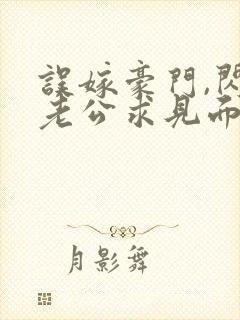 誤嫁豪門,閃
老公求見而
月影舞